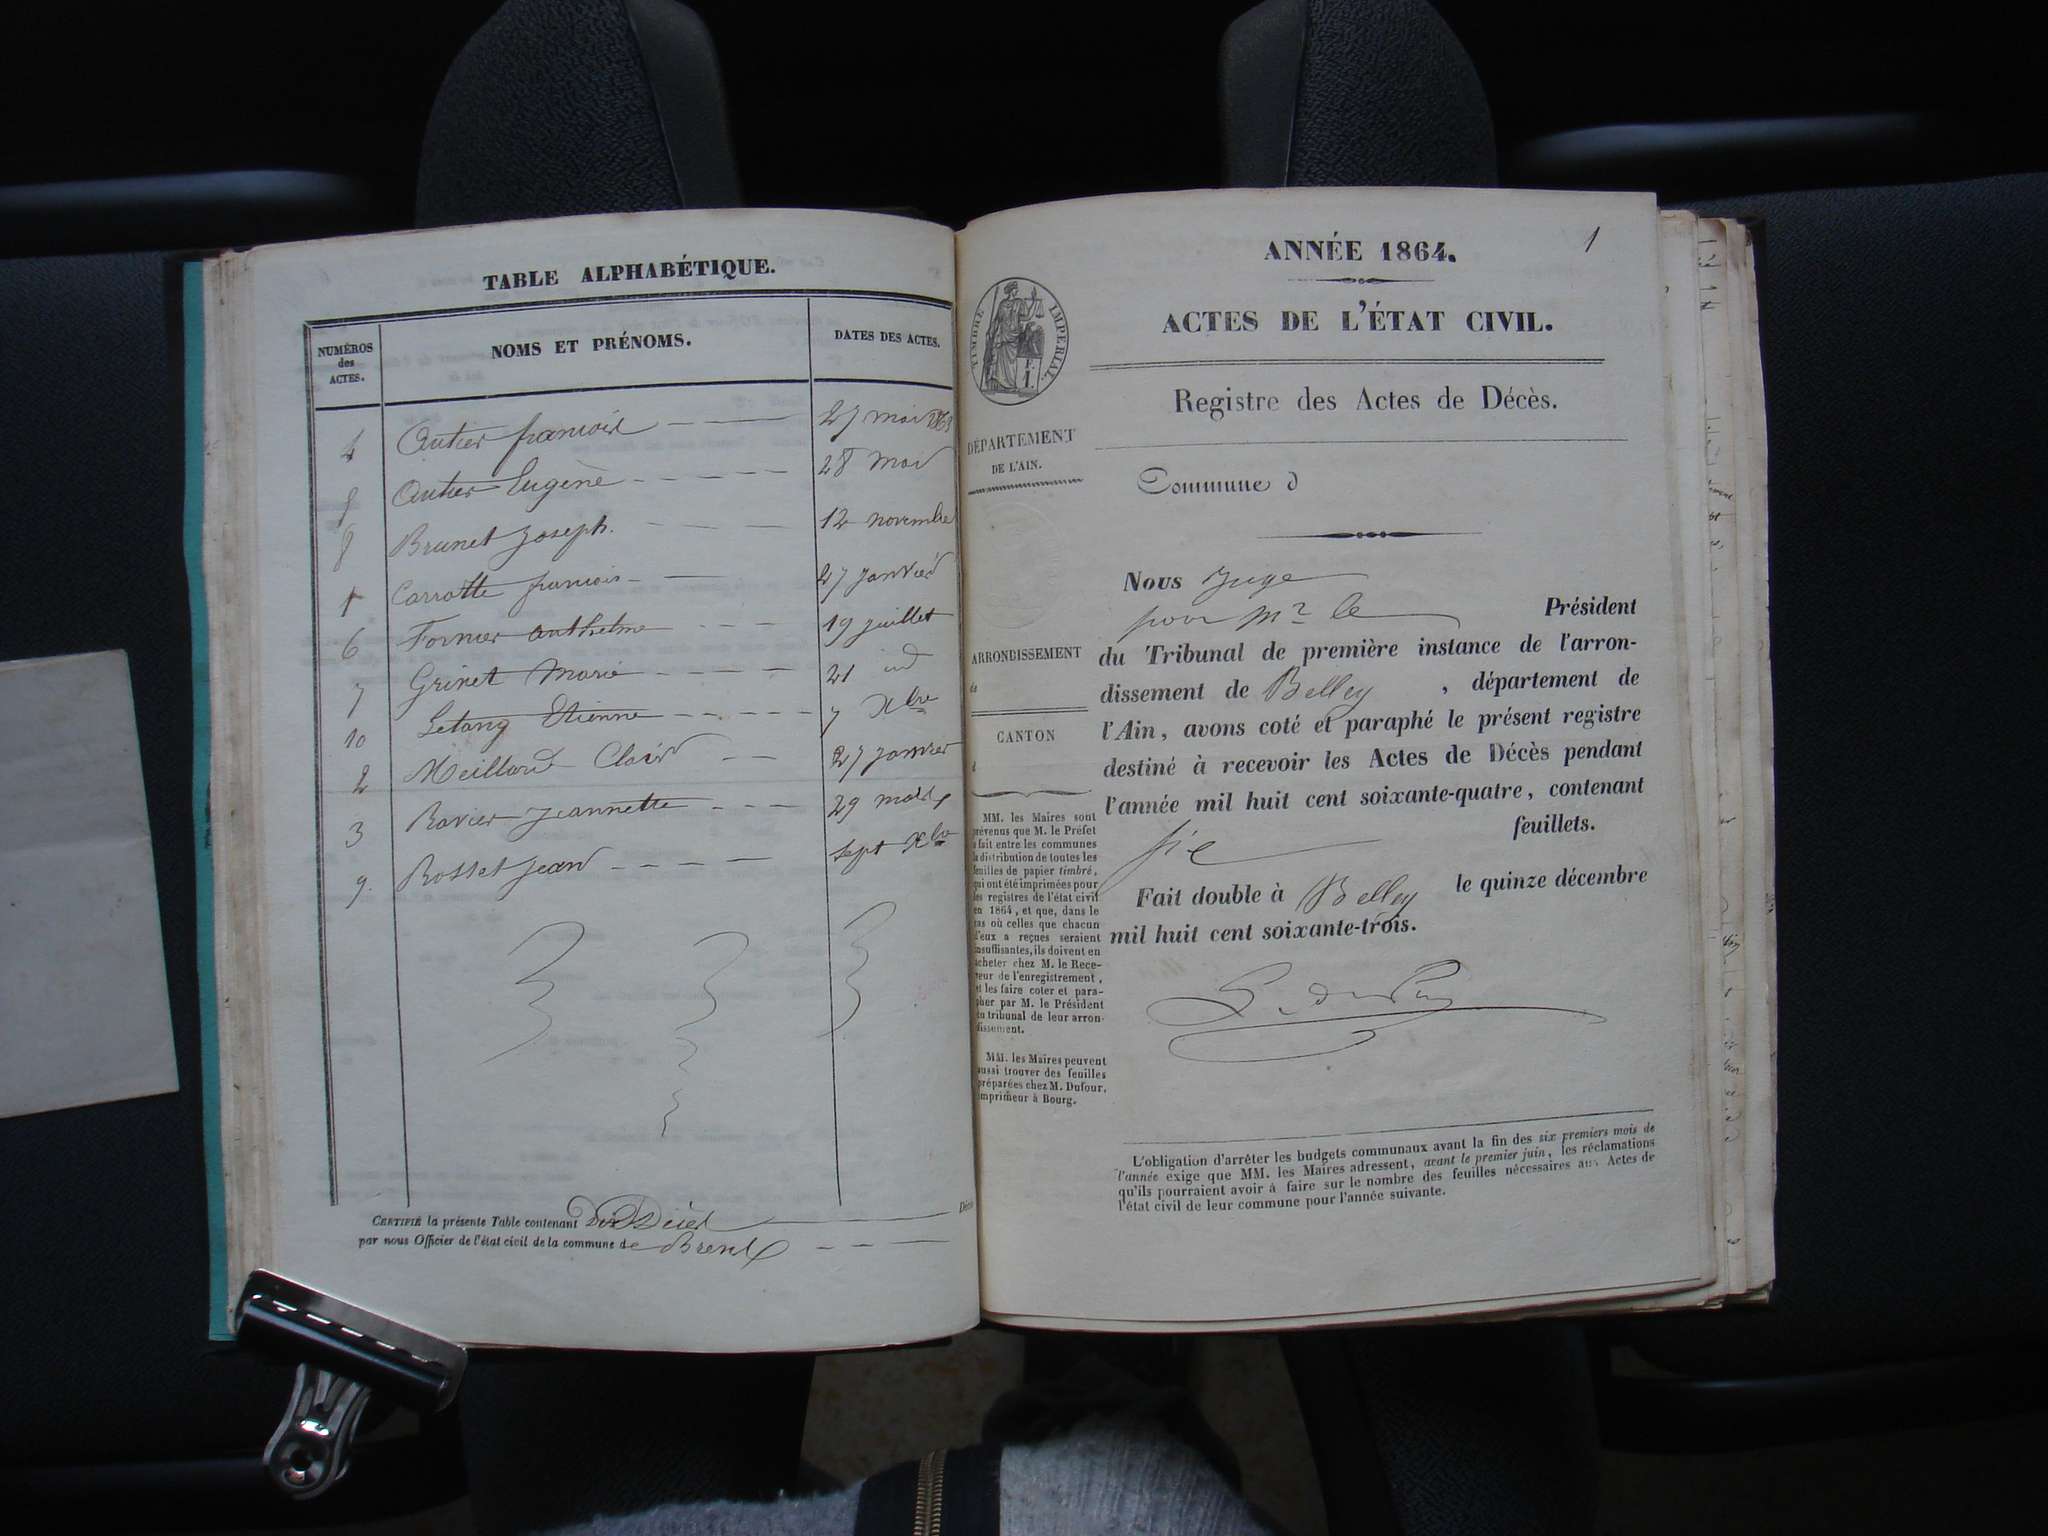 TABLE ALPHABÉTIQUE.
NUMÉROS des ACTES. NOMS ET PRÉNOMS. DATES DES ACTES.
4 Autier francois 27 mai 1863
5 Autier Eugène 28 mai
8 Brunet Joseph. 12 novembre
1 Carrotte francois 27 janvier
6 Fornier anthelme 19 juillet
7 Grinet Marie 21 id
10 Letang Etienne 7 Xbre
2 Meilland Clair 27 janvier
3 Ravier Jeannette 29 mars
9. Rosset Jean sept Xbre
CERTIFIÉ la présente Table contenant Dix Décès
par nous Officier de l'état civil de la commune de
1
ANNÉE 1864.
ACTES DE L'ÉTAT CIVIL.
Registre des Actes de Décès.
TIMBRE IMPÉRIAL.
DÉPARTEMENT
DE L'AIN.
Commune d
Nous Juge
pour Mr le Président
du Tribunal de première instance de l'arron-
dissement de Belley, département de
l'Ain, avons coté et paraphé le présent registre
destiné à recevoir les Actes de Décès pendant
l'année mil huit cent soixante-quatre, contenant
six feuillets.
Fait double à Belley le quinze décembre
mil huit cent soixante-trois.
ARRONDISSEMENT
de
CANTON
d
MM. les Maires sont
prévenus que M. le Préfet
a fait entre les communes
la distribution de toutes les
feuilles de papier timbré,
qui ont été imprimées pour
les registres de l'état civil
en 1864, et que, dans le
cas où celles que chacun
d'eux a reçues seraient
insuffisantes, ils doivent en
acheter chez M. le Rece-
veur de l'enregistrement,
et les faire coter et para-
pher par M. le Président
du tribunal de leur arron-
dissement.
MM. les Maires peuvent
aussi trouver des feuilles
préparées chez M. Dufour,
imprimeur à Bourg.
L'obligation d'arrêter les budgets communaux avant la fin des six premiers mois de
l'année exige que MM. les Maires adressent, avant le premier juin, les réclamations
qu'ils pourraient avoir à faire sur le nombre des feuilles nécessaires aux Actes de
l'état civil de leur commune pour l'année suivante.